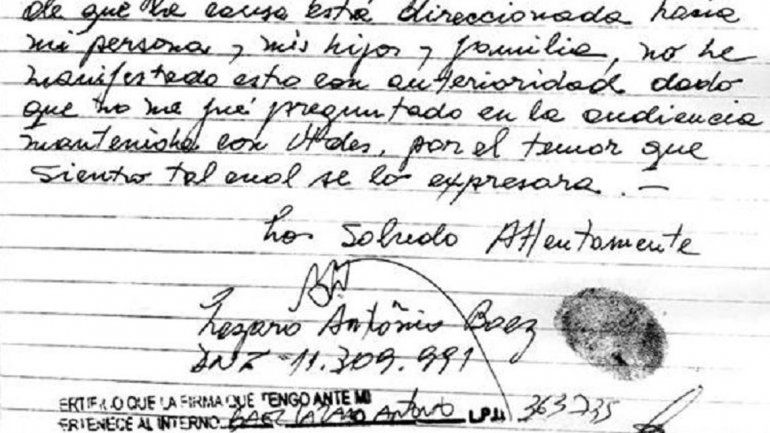 de que la causa está direccionada hacia
mi persona y mis hijos y familia, no he
manifestado esto con anterioridad dado
que no me fué preguntado en la audiencia
mantenida con Uds, por el temor que
siento tal cual se lo expresara. —
Los Saludo Attentamente
Lazaro Antônio Baez
DNI - 11.309.991
ERTIFICO QUE LA FIRMA QUE TENGO ANTE MI
ERTENECE AL INTERNO. BAEZ LAZARO Antonio L.P.U. 363735